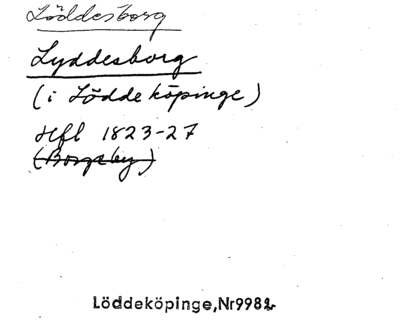 Löddesborg
Lyddesborg
(i Lödde köpinge)
Hfl 1823-27
(Borgeby)
Löddeköpinge,Nr9982